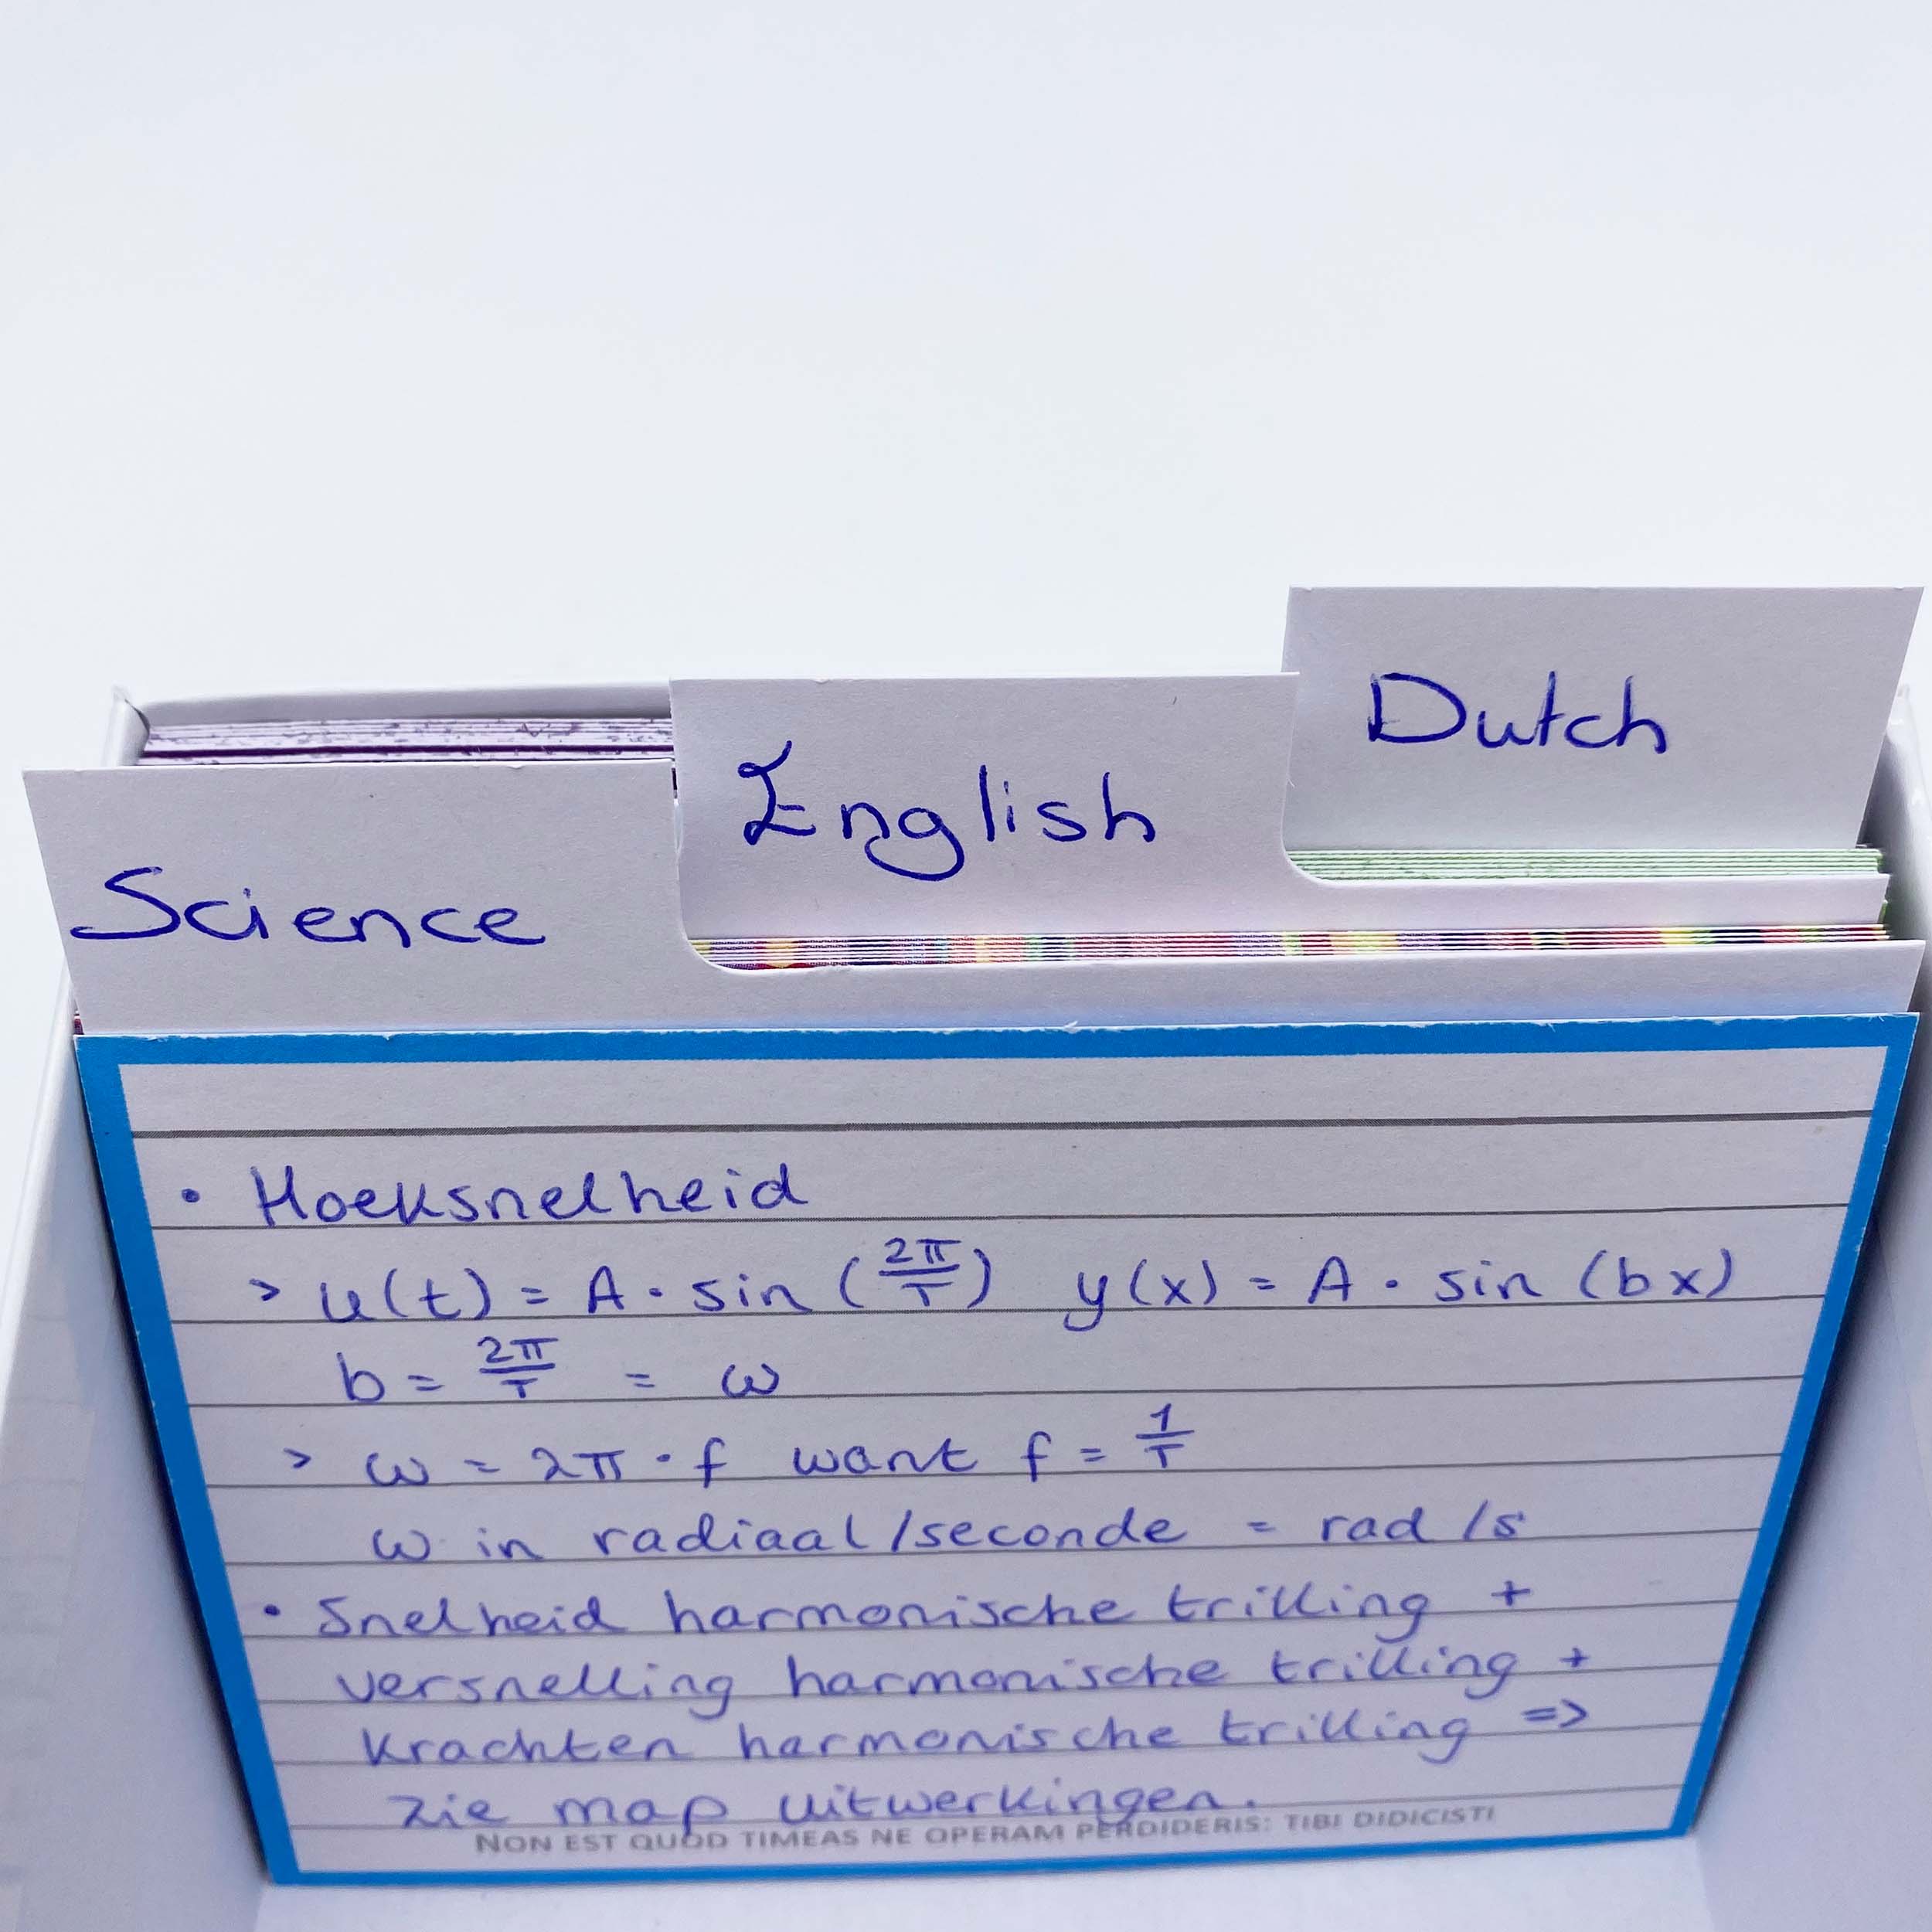 Dutch
English
Science
• Hoeksnelheid
> u(t) = A · sin (2π/T) y(x) = A · sin (bx)
b = 2π/T = ω
> ω = 2π · f want f = 1/T
ω in radiaal/seconde = rad/s
• Snelheid harmonische trilling +
versnelling harmonische trilling +
krachten harmonische trilling =>
zie map uitwerkingen.
NON EST QUOD TIMEAS NE OPERAM PERDIDERIS: TIBI DIDICISTI